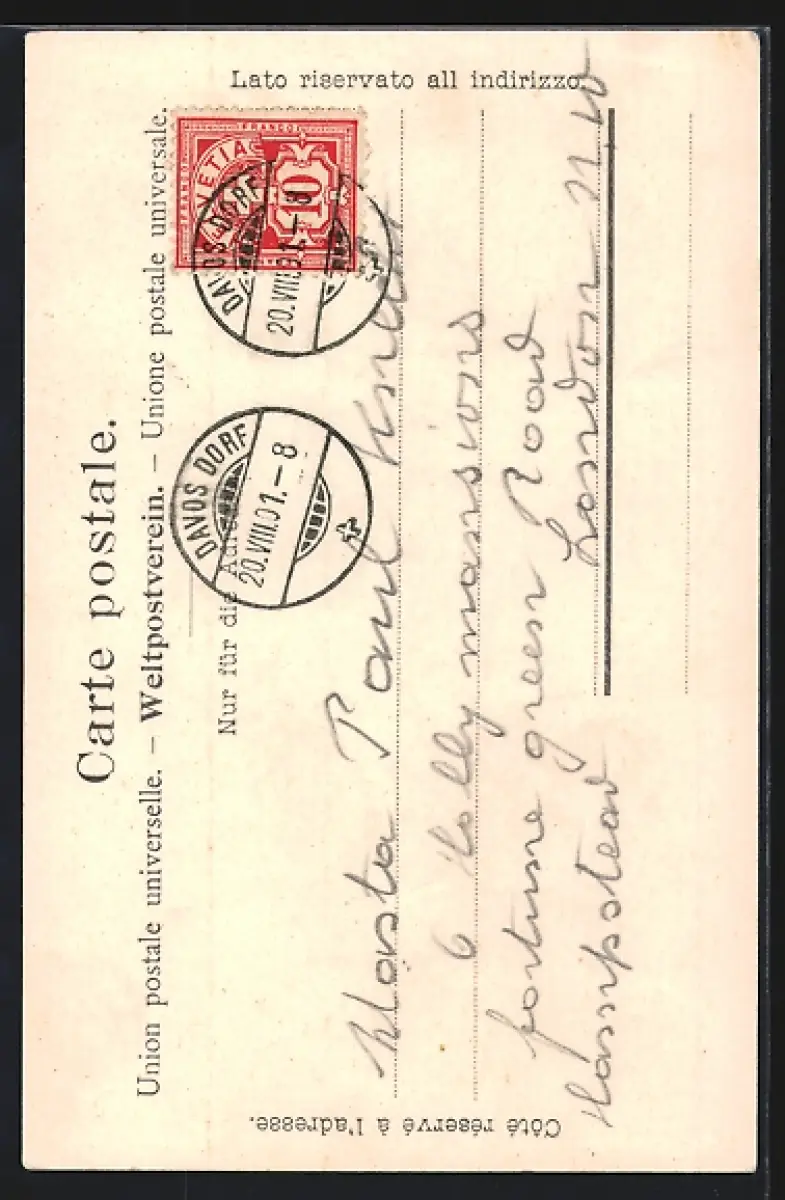 Carte postale.
Union postale universelle. – Weltpostverein. – Unione postale universale.
Nur für die Adr
Lato riservato all indirizzo.
Côté réservé à l'adresse.
FRANCO
FRANCO
HELVETIA
10
DAVOS DORF
20.VIII.01.–8
DAVOS DORF
20.VIII.01.–8
Paul
6 Holly mansions
fortune green Road
Hampstead London N.W